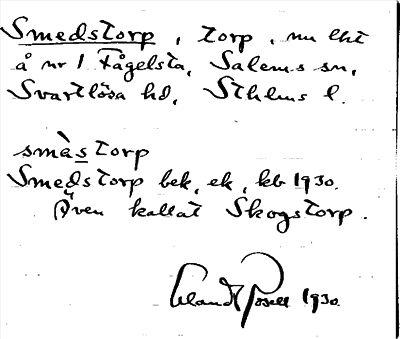 Smedstorp, torp, nu lht
å nr 1 Fågelsta, Salems sn,
Svartlösa hd, Sthlms l.
smàstorp
Smedstorp bek, ek, kb 1930.
Även kallat Skogstorp.
1930.